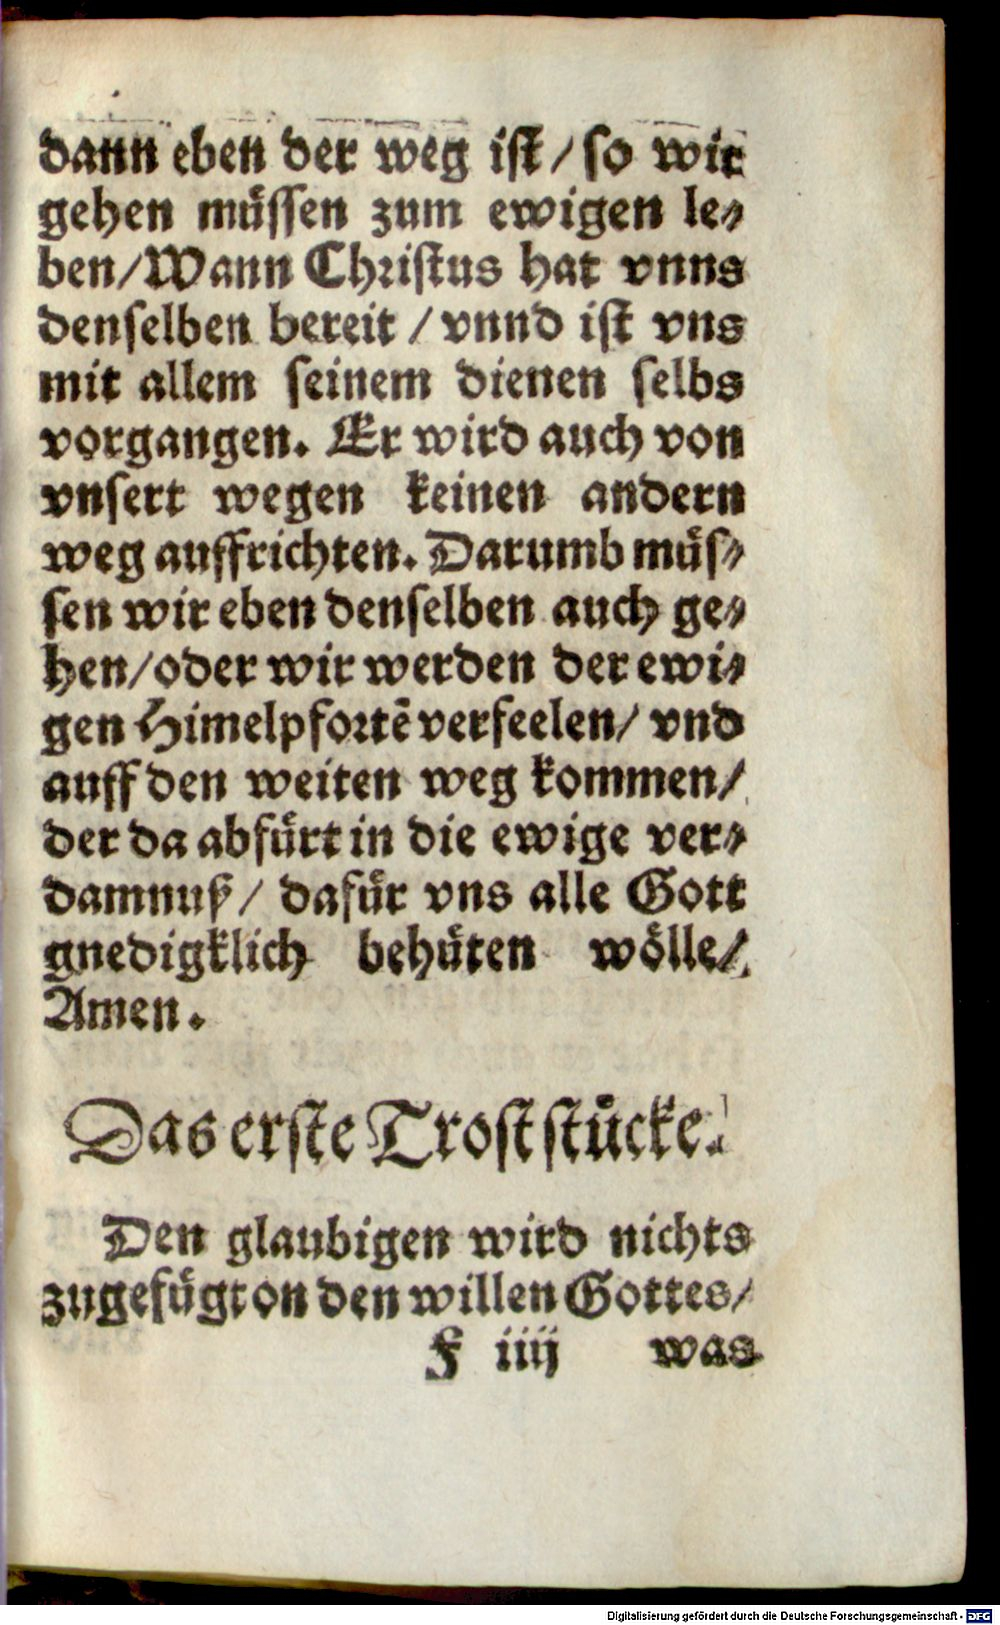 dann eben der weg ist / so wir
gehen müssen zum ewigen le⸗
ben / Wann Christus hat vnns
denselben bereit / vnnd ist vns
mit allem seinem dienen selbs
vorgangen. Er wird auch von
vnsert wegen keinen andern
weg auffrichten. Darumb müs⸗
sen wir eben denselben auch ge⸗
hen / oder wir werden der ewi⸗
gen Himelpfortē verfeelen / vnd
auff den weiten weg kommen /
der da abfürt in die ewige ver⸗
damnuß / dafür vns alle Gott
gnedigklich behüten wölle /
Amen.
Das erste Troststücke.
Den glaubigen wird nichts
zugefügt on den willen Gottes /
F iiij was
Digitalisierung gefördert durch die Deutsche Forschungsgemeinschaft - DFG